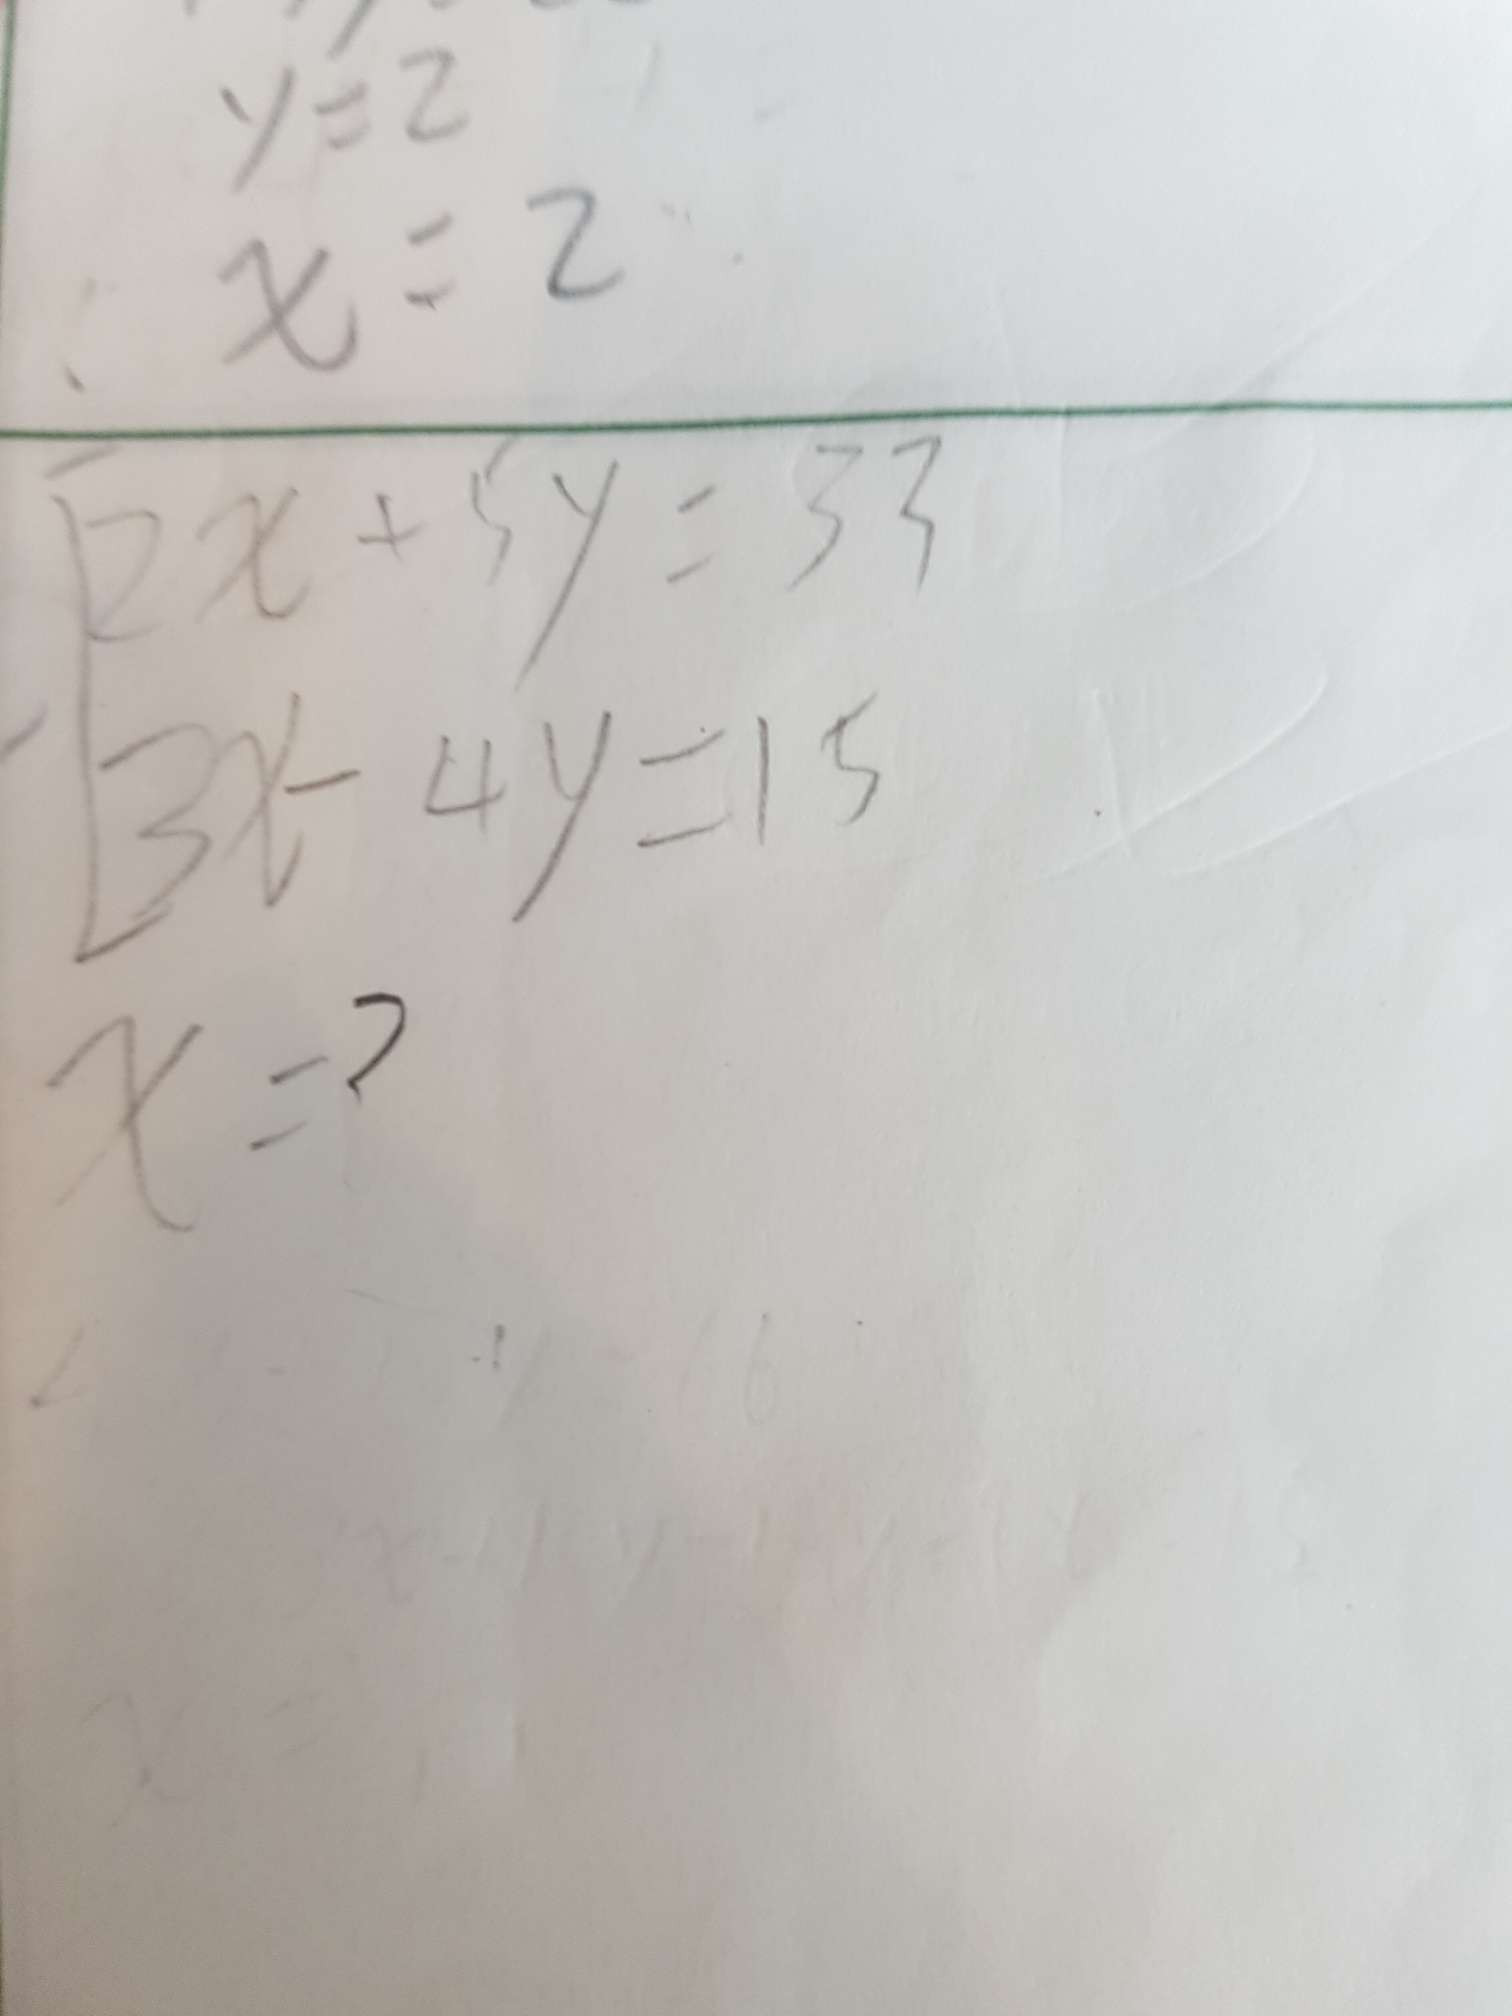 y=2
x=2
2x+5y=33
3x-4y=15
x=?